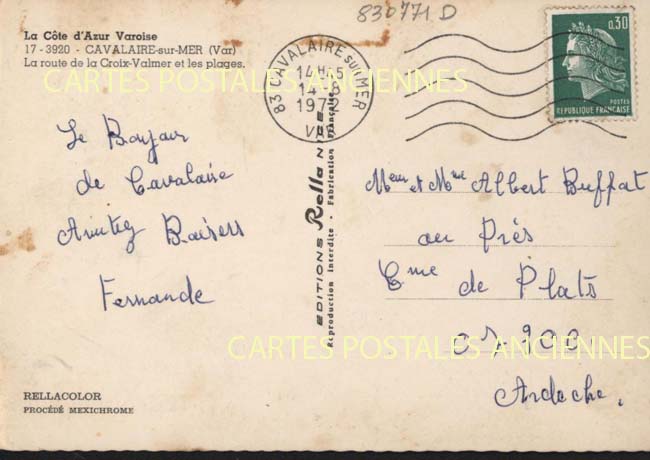 830771 D
La Côte d'Azur Varoise
17-3920 - CAVALAIRE-sur-MER (Var)
La route de la Croix-Valmer et les plages.
CARTES POSTALES ANCIENNES
83 CAVALAIRE SUR MER
14H-5
1972
VAR
0,30
POSTES
REPUBLIQUE FRANÇAISE
Le Bonjour
de Cavalaire
Amitiez Baisers
Fernande
EDITIONS Rella NICE
Reproduction Interdite - Fabrication Française
Meur et Mme Albert Buffat
au Prés
Cme de Plats
07.900
Ardeche.
CARTES POSTALES ANCIENNES
RELLACOLOR
PROCÉDÉ MEXICHROME